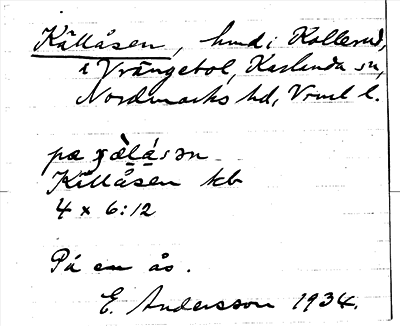 Källåsen, hmd i Kollerud,
i Vrångebol, Karlanda sn,
Nordmarks hd, Vrml l.
pa çɛ̀lásən
Källåsen kb
4 x 6:12
På en ås.
E. Andersson 1934.